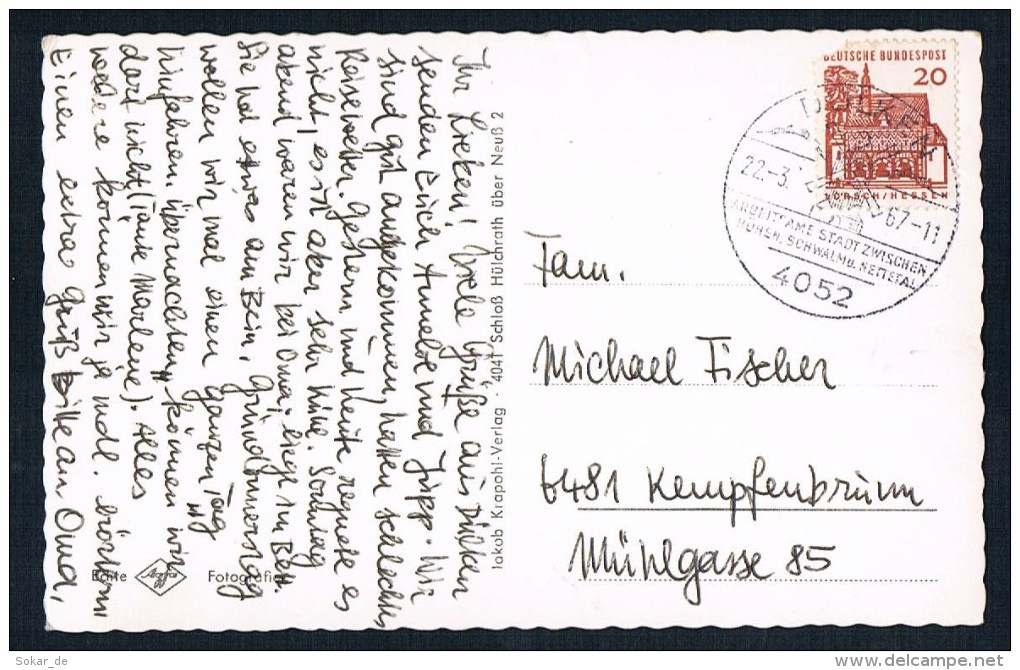 Ihr Lieben! Viele Grüße aus Dülken
senden Euch Annelore und Jupp. Wir
sind gut angekommen, hatten schlechtes
Reisewetter. Gestern und heute regnete es
nicht, es ist aber sehr kühl. Sonntag
abend waren wir bei Oma, liegt im Bett.
Sie hat etwas am Bein. Gründonnerstag
wollen wir mal einen ganzen Tag
hinfahren. "Übernachten" können wir
dort nicht (Tante Marlene). Alles
weitere können wir ja mdl.
Einen extra Gruß Bitte an Oma,
Jakob Krapohl-Verlag · 4041 Schloß Hülchrath über Neuß 2
Echte Agfa Fotografie
DEUTSCHE BUNDESPOST
20
LORSCH/HESSEN
DÜLKEN
22-3. 67-11
ARBEITSAME STADT ZWISCHEN
HÜHSR. SCHWALM U. NETTETAL
4052
Fam.
Michael Fischer
6481 Kempfenbrunn
Mühlgasse 85
Sokar_de
www.delcampe.net